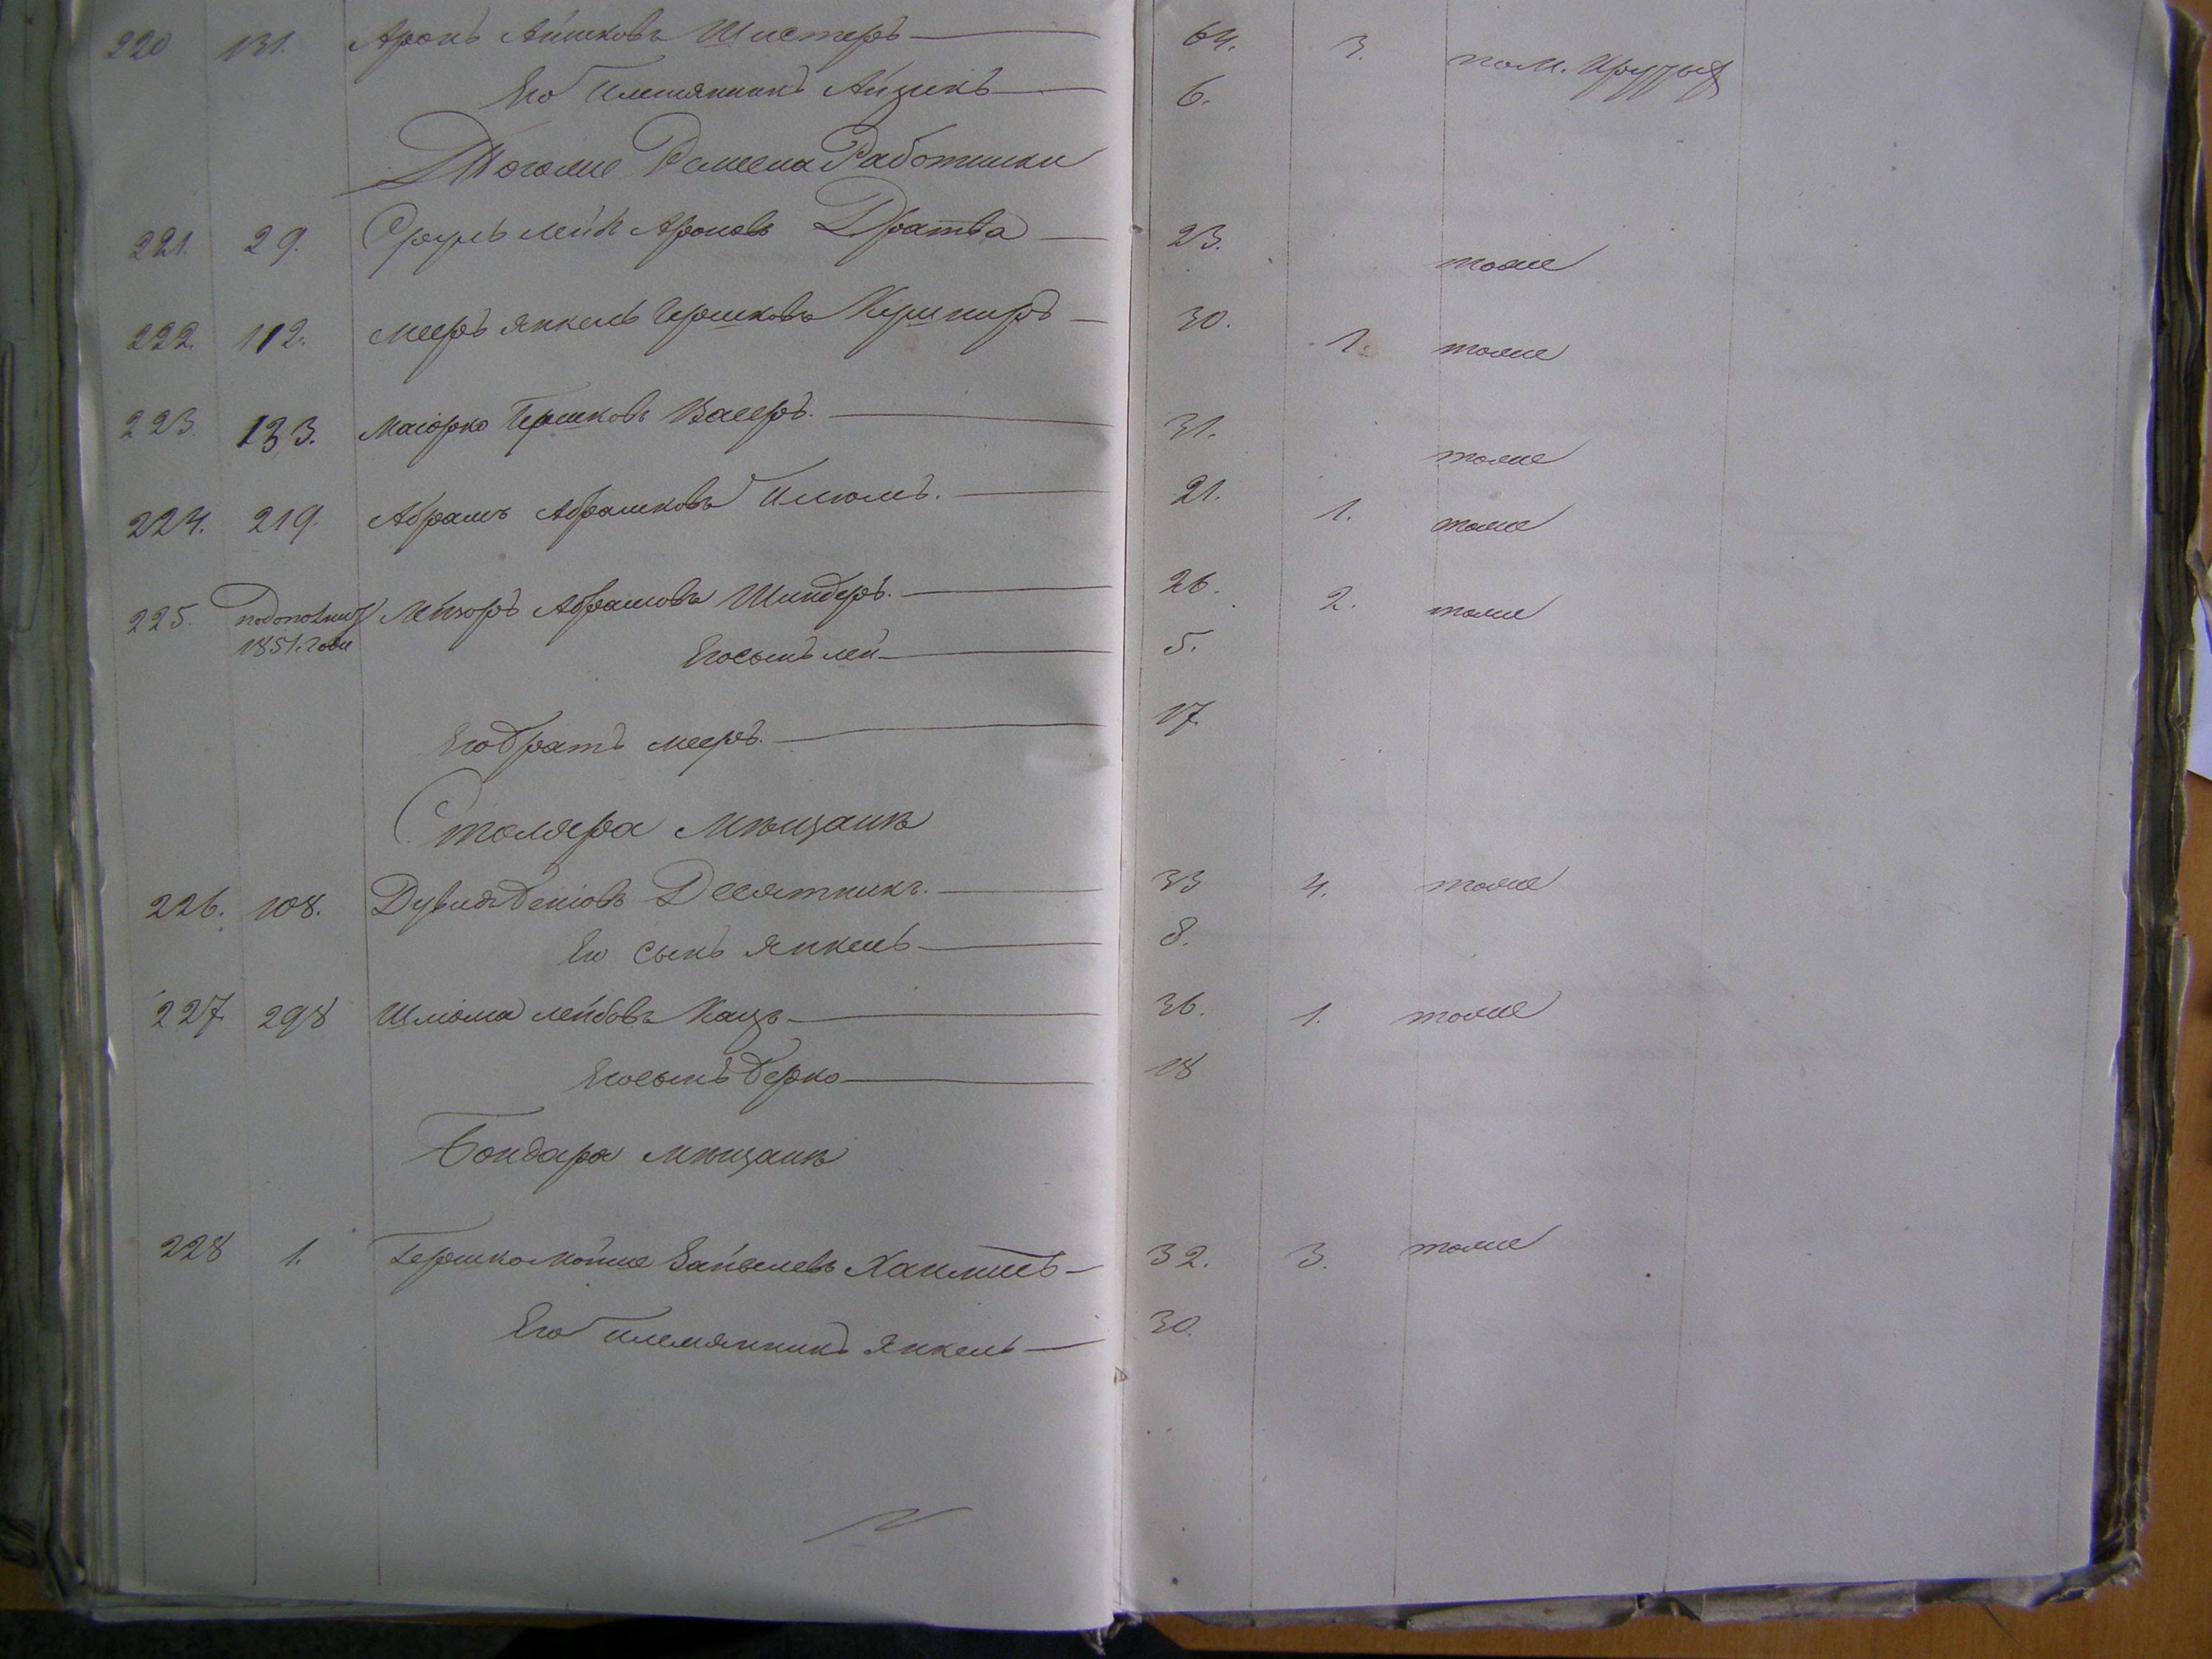 220 131. Аронъ Айшковъ Шистеръ 64. 3. пом.
Его Племянникъ Айзикъ 6.
Тогоже Ремесла Работники
221. 29. Сруль Лейб Ароновъ Дратва 23. тоже
222. 112. Мееръ Янкель Гершковъ Киршнеръ 30. 1. тоже
223. 133. Маіорко Гершковъ Васеръ. 31. тоже
224. 219. Абрамъ Абрамковъ 21. 1. тоже
225. Лейзоръ Абрамовъ Шиндеръ. 26. 2. тоже
1851. года
Его сынъ Лей 5.
Его братъ Мееръ. 17.
Столяра Мѣщанѣ
226. 108. Дувидъ Беніовъ Десятникъ. 33 4. тоже
Его сынъ Янкель 8.
227. 298 Шліома Лейбовъ Кацъ 36. 1. тоже
Его сынъ Берко 18
Бондара Мѣщанѣ
228 1. Гершко Мойше 32. 3. тоже
Его Племянникъ Янкель 30.